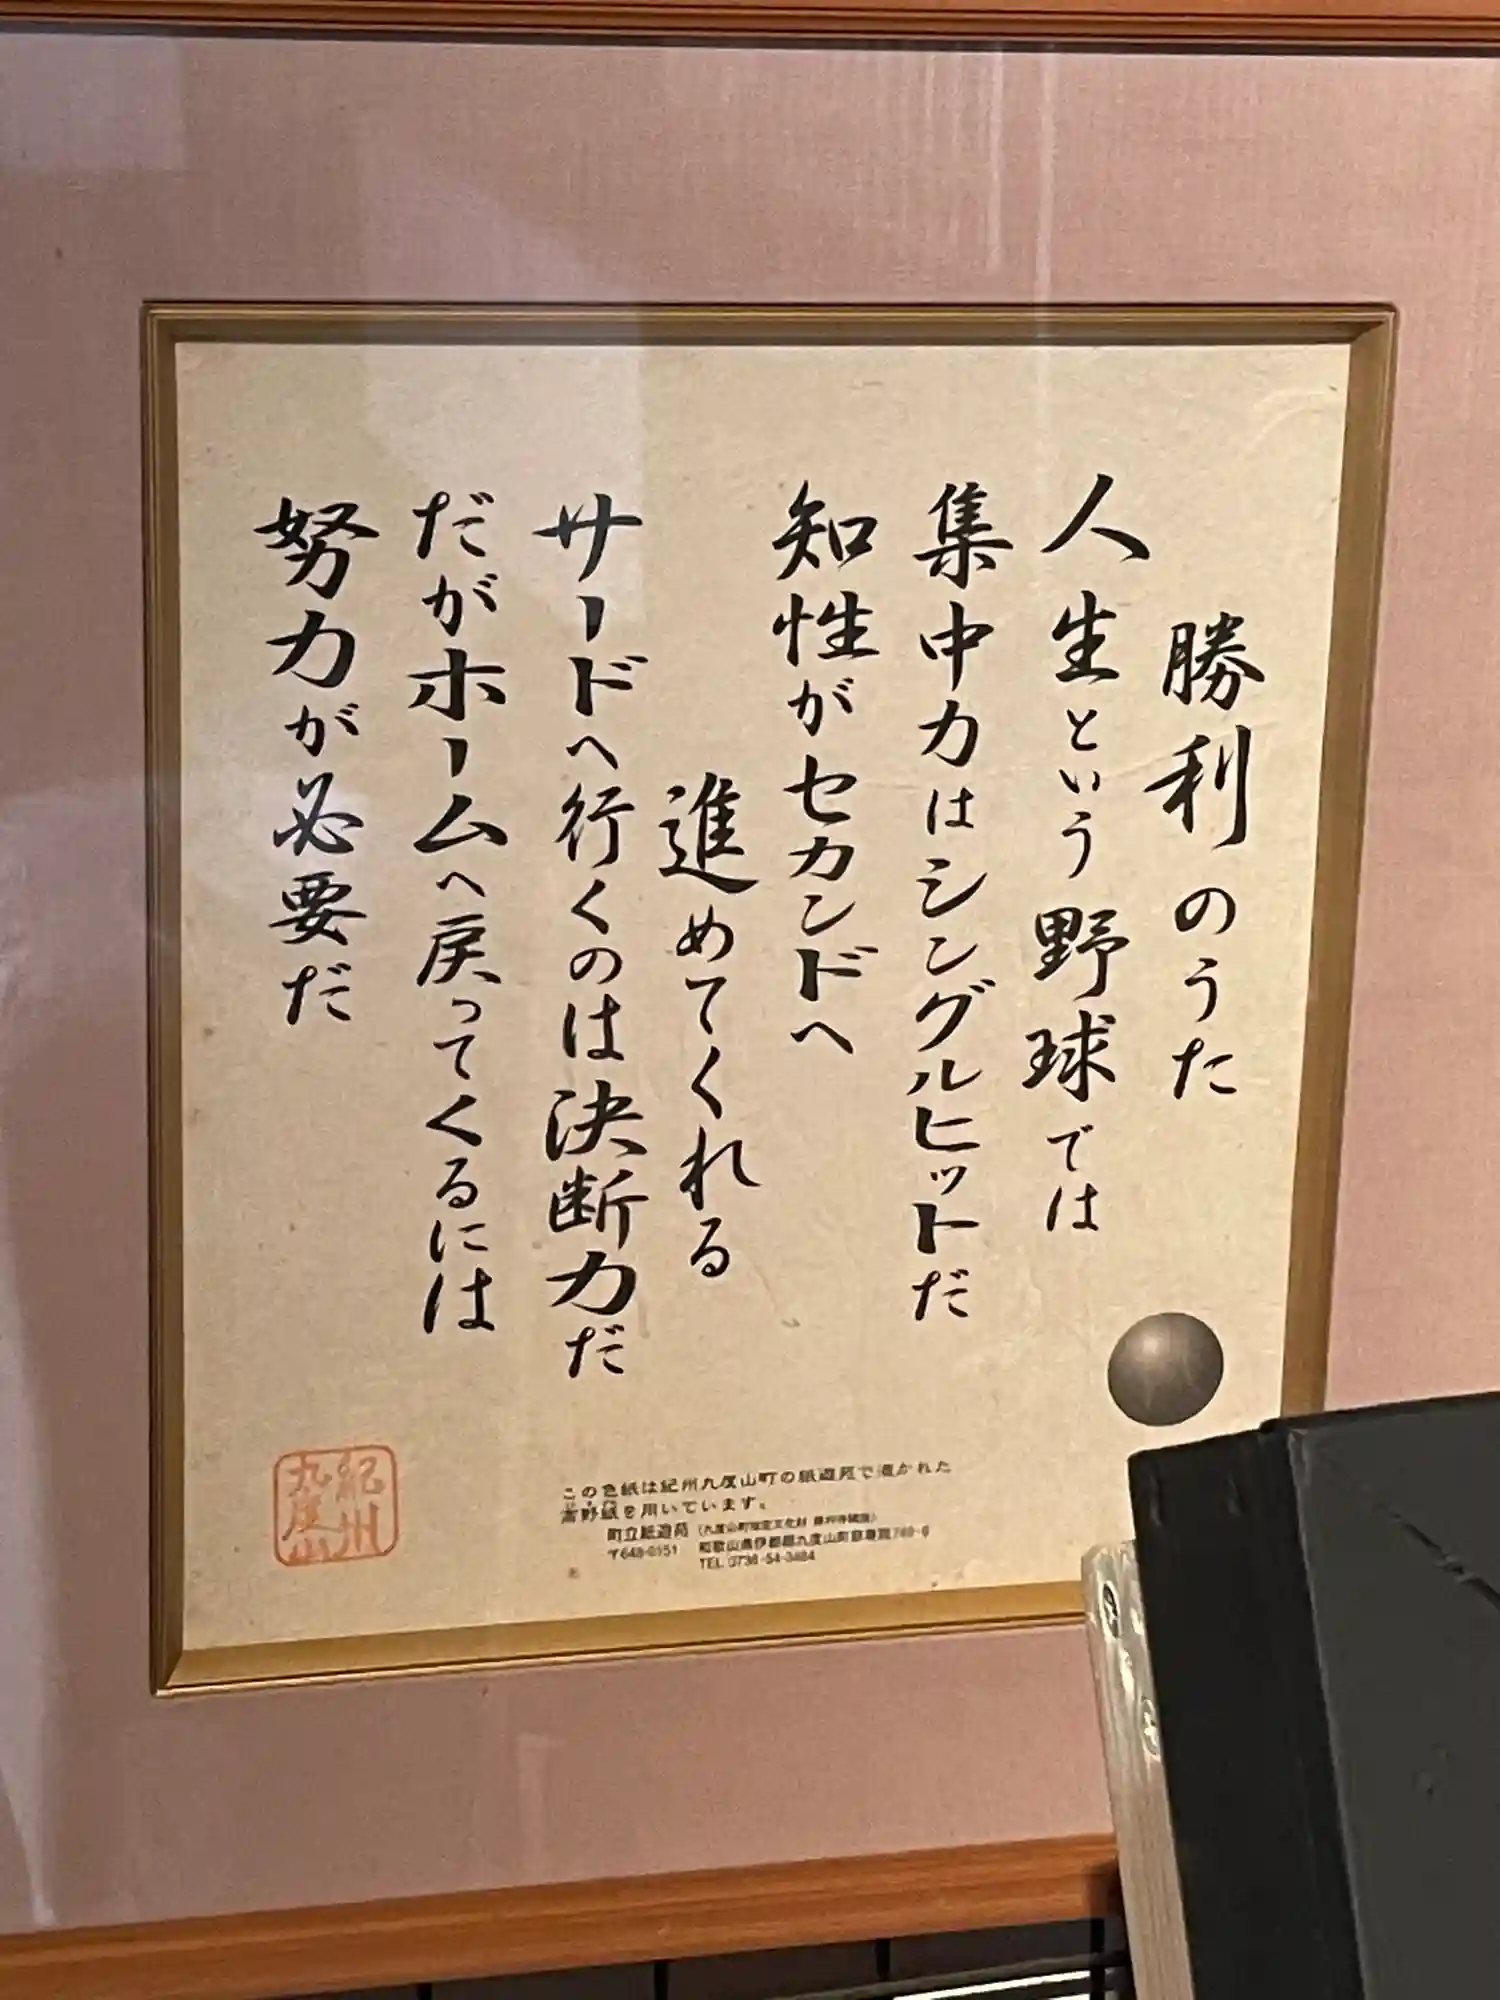 勝利のうた
人生という野球では
集中力はシングルヒットだ
知性がセカンドへ
進めてくれる
サードへ行くのは決断力だ
だがホームへ戻ってくるには
努力が必要だ
紀州
九度山
この色紙は紀州九度山町の紙遊苑で漉かれた
高野紙を用いています。
町立紙遊苑
〒648-0151
TEL 0736-54-3484